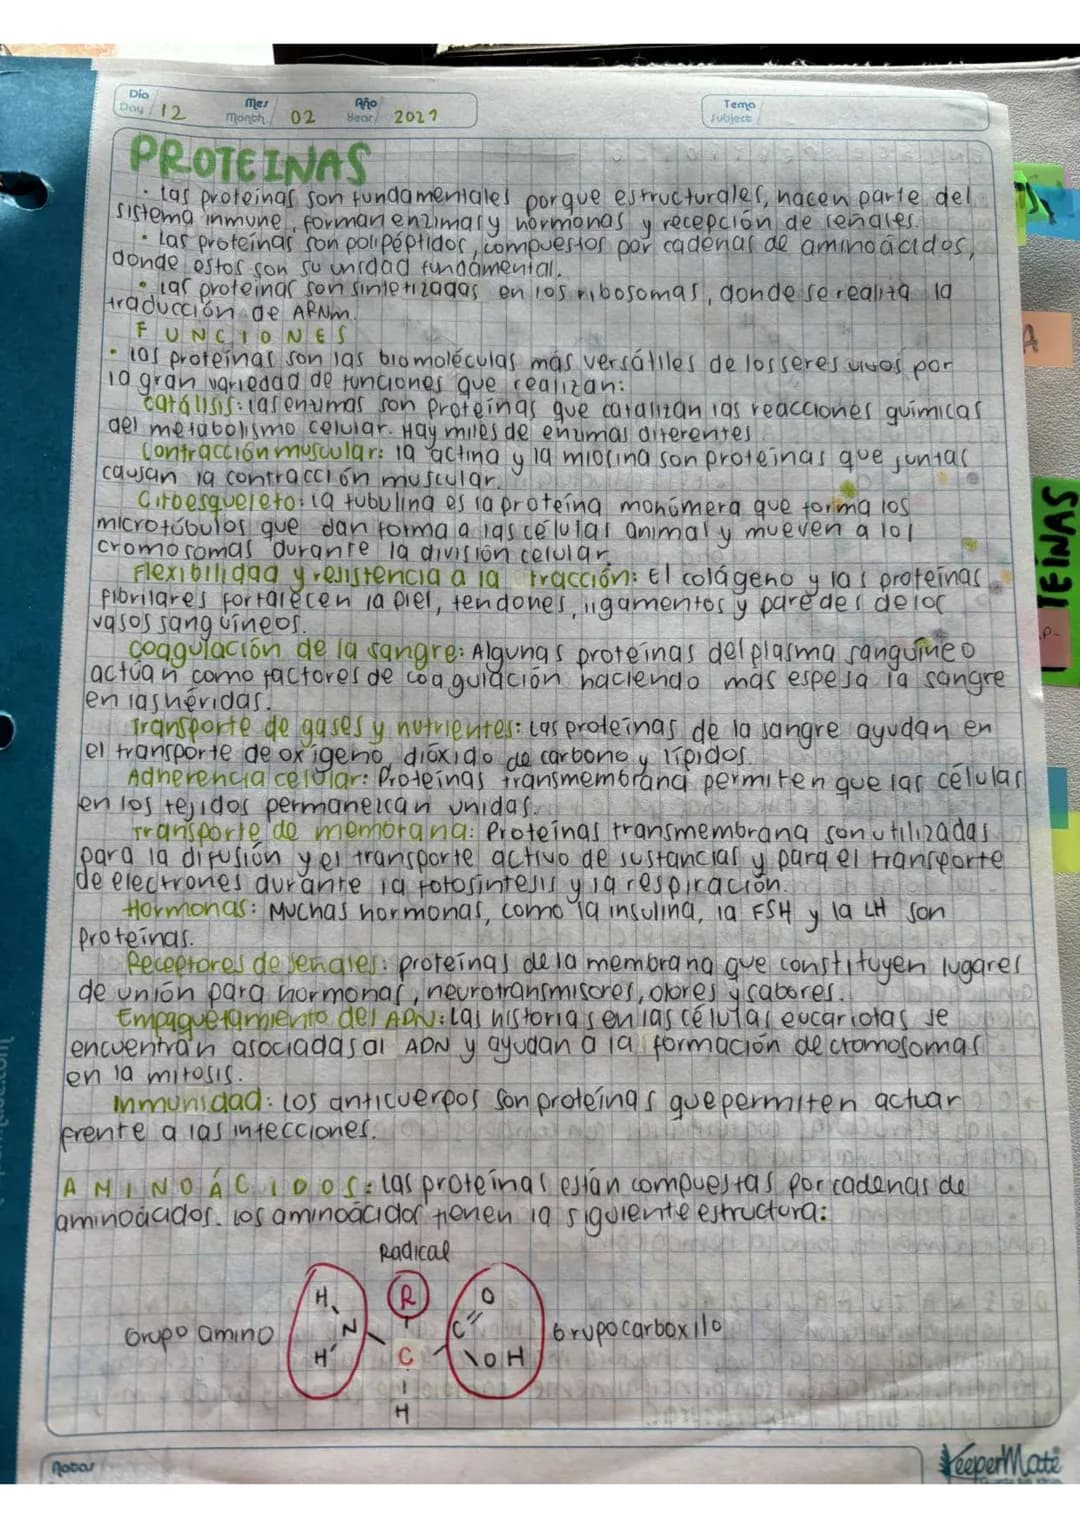 Día
Day / 12 Mes Month / 02 Año Year / 2021 Tema Subject
PROTEINAS
• Las proteínas son fundamentales porque estructurales, hacen parte del
sistema inmune, forman enzimas y hormonas y recepción de señales.
• Las proteínas son polipéptidos, compuestos por cadenas de aminoácidos,
donde estos son su unidad fundamental.
• Las proteínas son sintetizadas en los ribosomas, donde se realiza la
traducción de ARNm.
FUNCIONES
• las proteínas son las biomoléculas más versátiles de los seres vivos por
la gran variedad de funciones que realizan:
Catálisis: las enzimas son proteínas que catalizan las reacciones químicas
del metabolismo celular. Hay miles de enzimas diferentes
Contracción muscular: la actina y la miosina son proteínas que juntas
causan la contracción muscular.
Citoesqueleto: la tubulina es la proteína monómera que forma los
microtúbulos que dan forma a las células animal y mueven a los
cromosomas durante la división celular
Flexibilidad y resistencia a la tracción: El colágeno y las proteínas
fibrilares fortalecen la piel, tendones, ligamentos y paredes de los
vasos sanguíneos.
Coagulación de la sangre: Algunas proteínas del plasma sanguíneo
actúan como factores de coagulación haciendo más espesa la sangre
en las heridas.
Transporte de gases y nutrientes: Las proteínas de la sangre ayudan en
el transporte de oxígeno, dióxido de carbono y lípidos.
Adherencia celular: Proteínas transmembrana permiten que las células
en los tejidos permanezcan unidas.
Transporte de membrana: Proteínas transmembrana son utilizadas
para la difusión y el transporte activo de sustancias y para el transporte
de electrones durante la fotosíntesis y la respiración.
Hormonas: Muchas hormonas, como la insulina, la FSH y la LH son
proteínas.
Receptores de señales: proteínas de la membrana que constituyen lugares
de unión para hormonas, neurotransmisores, olores y sabores.
Empaquetamiento del ADN: Las historias en las células eucariotas se
encuentran asociadas al ADN y ayudan a la formación de cromosomas
en la mitosis.
Inmunidad: Los anticuerpos son proteínas que permiten actuar
frente a las infecciones.
AMINOÁCIDOS: las proteínas están compuestas por cadenas de
aminoácidos. Los aminoácidos tienen la siguiente estructura:
Radical
H R O
Grupo amino N C Grupo carboxilo
H C OH
H
Notas
KeeperMate
A
TEÍNAS